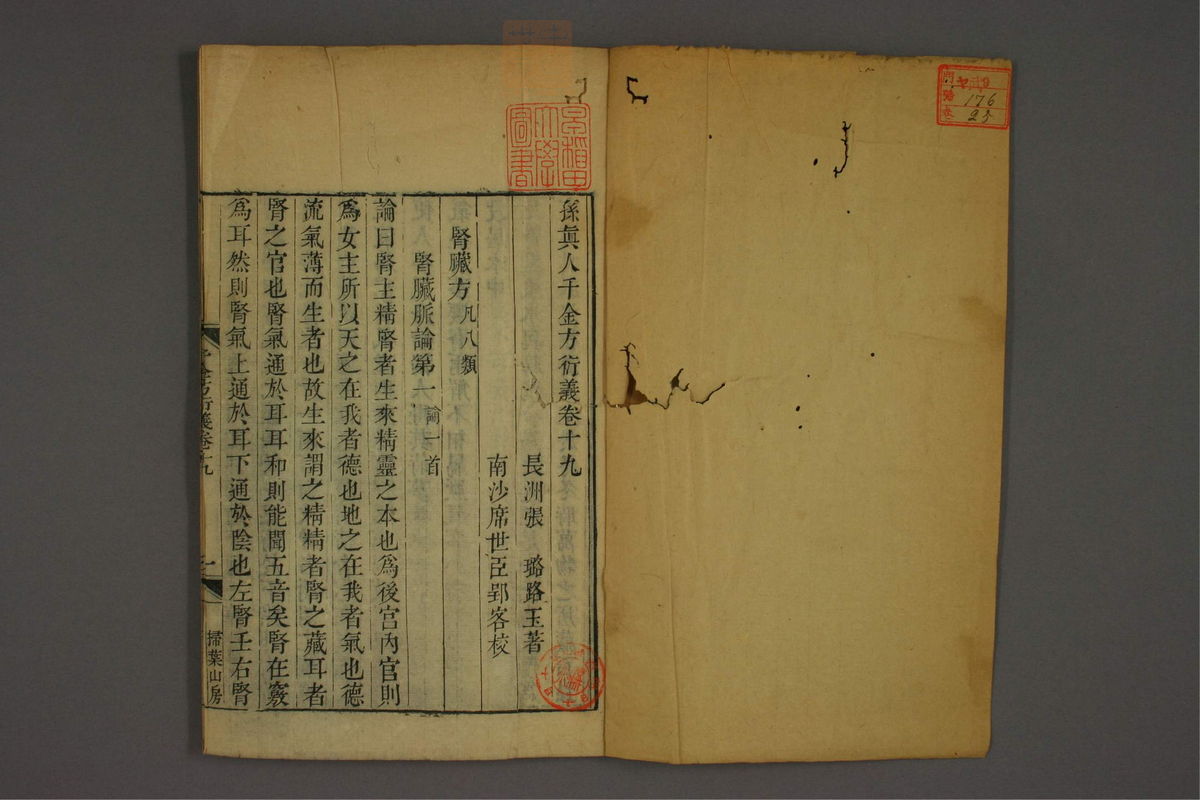 孫眞人千金方衍義卷十九
長洲張　璐路玉著
南沙席世臣郢客校
腎臟方凡八類
腎臟脈論第一　論一首
論曰腎主精腎者生來精靈之本也爲後宮內官則
爲女主所以天之在我者德也地之在我者氣也德
流氣薄而生者也故生來謂之精精者腎之藏耳者
腎之官也腎氣通於耳耳和則能聞五音矣腎在竅
爲耳然則腎氣上通於耳下通於陰也左腎壬右腎
卷十九
一
掃葉山房
早稲田
大學
圖書
門
號
卷
176
23